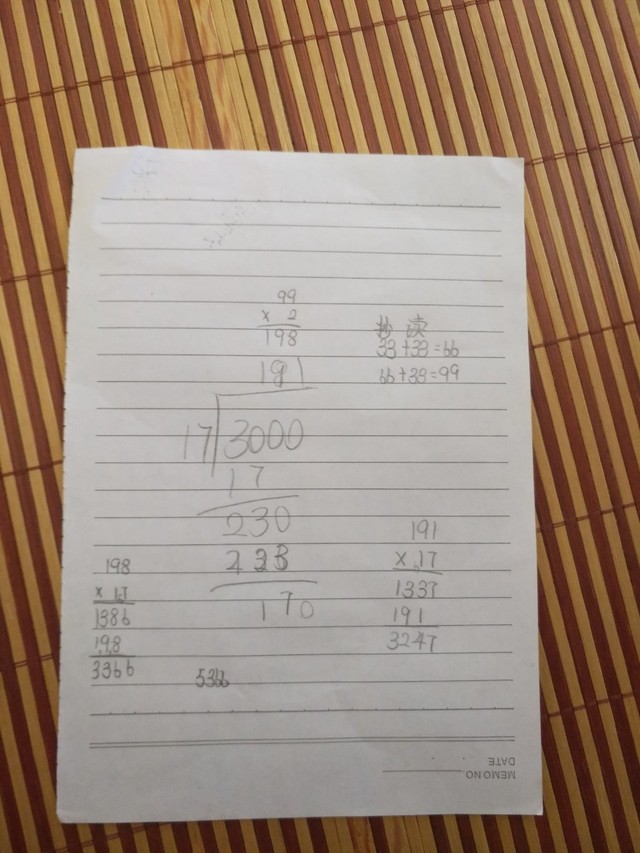 99
× 2
198
抄 读
33+33=66
66+33=99
191
17 3000
17
230
233
170
198
× 17
1386
198
3366
191
× 17
1337
191
3247
5366
MEMO NO
DATE